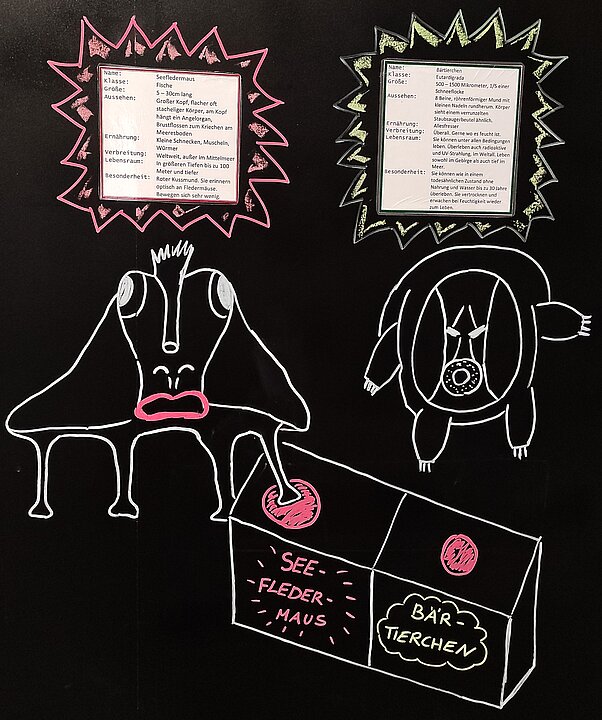 Name: Seefledermaus
Klasse: Fische
Größe: 5 – 30cm lang
Aussehen: Großer Kopf, flacher oft
stacheliger Körper, am Kopf
hängt ein Angelorgan,
Brustflossen zum Kriechen am
Meeresboden
Ernährung: Kleine Schnecken, Muscheln,
Würmer
Verbreitung: Weltweit, außer im Mittelmeer
Lebensraum: In größeren Tiefen bis zu 100
Meter und tiefer
Besonderheit: Roter Kussmund. Sie erinnern
optisch an Fledermäuse.
Bewegen sich sehr wenig.
Name: Bärtierchen
Klasse: Eutardigrada
Größe: 500 – 1500 Mikrometer, 1/5 einer
Schneeflocke
Aussehen: 8 Beine, röhrenförmiger Mund mit
kleinen Nadeln rundherum. Körper
sieht einem verrunzelten
Staubsaugerbeutel ähnlich.
Ernährung: Allesfresser
Verbreitung: Überall. Gerne wo es feucht ist.
Lebensraum: Sie können unter allen Bedingungen
leben. Überleben auch radioaktive
und UV-Strahlung, im Weltall. Leben
sowohl im Gebirge als auch tief im
Meer.
Besonderheit: Sie können wie in einem
todesähnlichen Zustand ohne
Nahrung und Wasser bis zu 30 Jahre
überleben. Sie vertrocknen und
erwachen bei Feuchtigkeit wieder
zum Leben.
SEE-
FLEDER-
MAUS
BÄR-
TIERCHEN